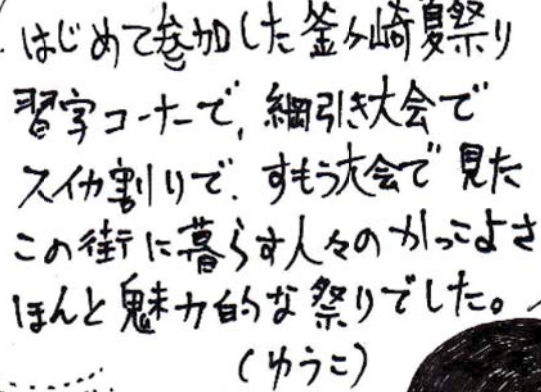 はじめて参加した釜ヶ崎夏祭り
習字コーナーで、綱引き大会で
スイカ割りで、すもう大会で見た
この街に暮らす人々のかっこよさ
ほんと魅力的な祭りでした。
(ゆうこ)